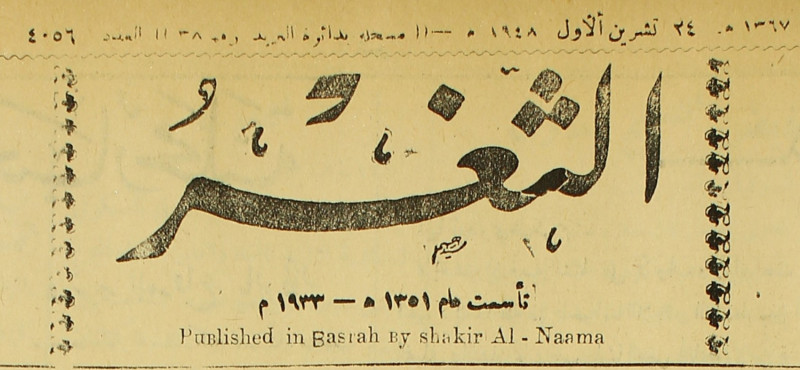 ١٣٦٧ ه. ٢٤ تشرين الأول ١٩٤٨ م —١١ مسجله بدائرة البريد رقم ٣٨ ١١ العدد ٤٠٥٦
الثغر
تأسست عام ١٣٥١ ه — ١٩٣٣ م
Published in Basrah By shakir Al - Naama